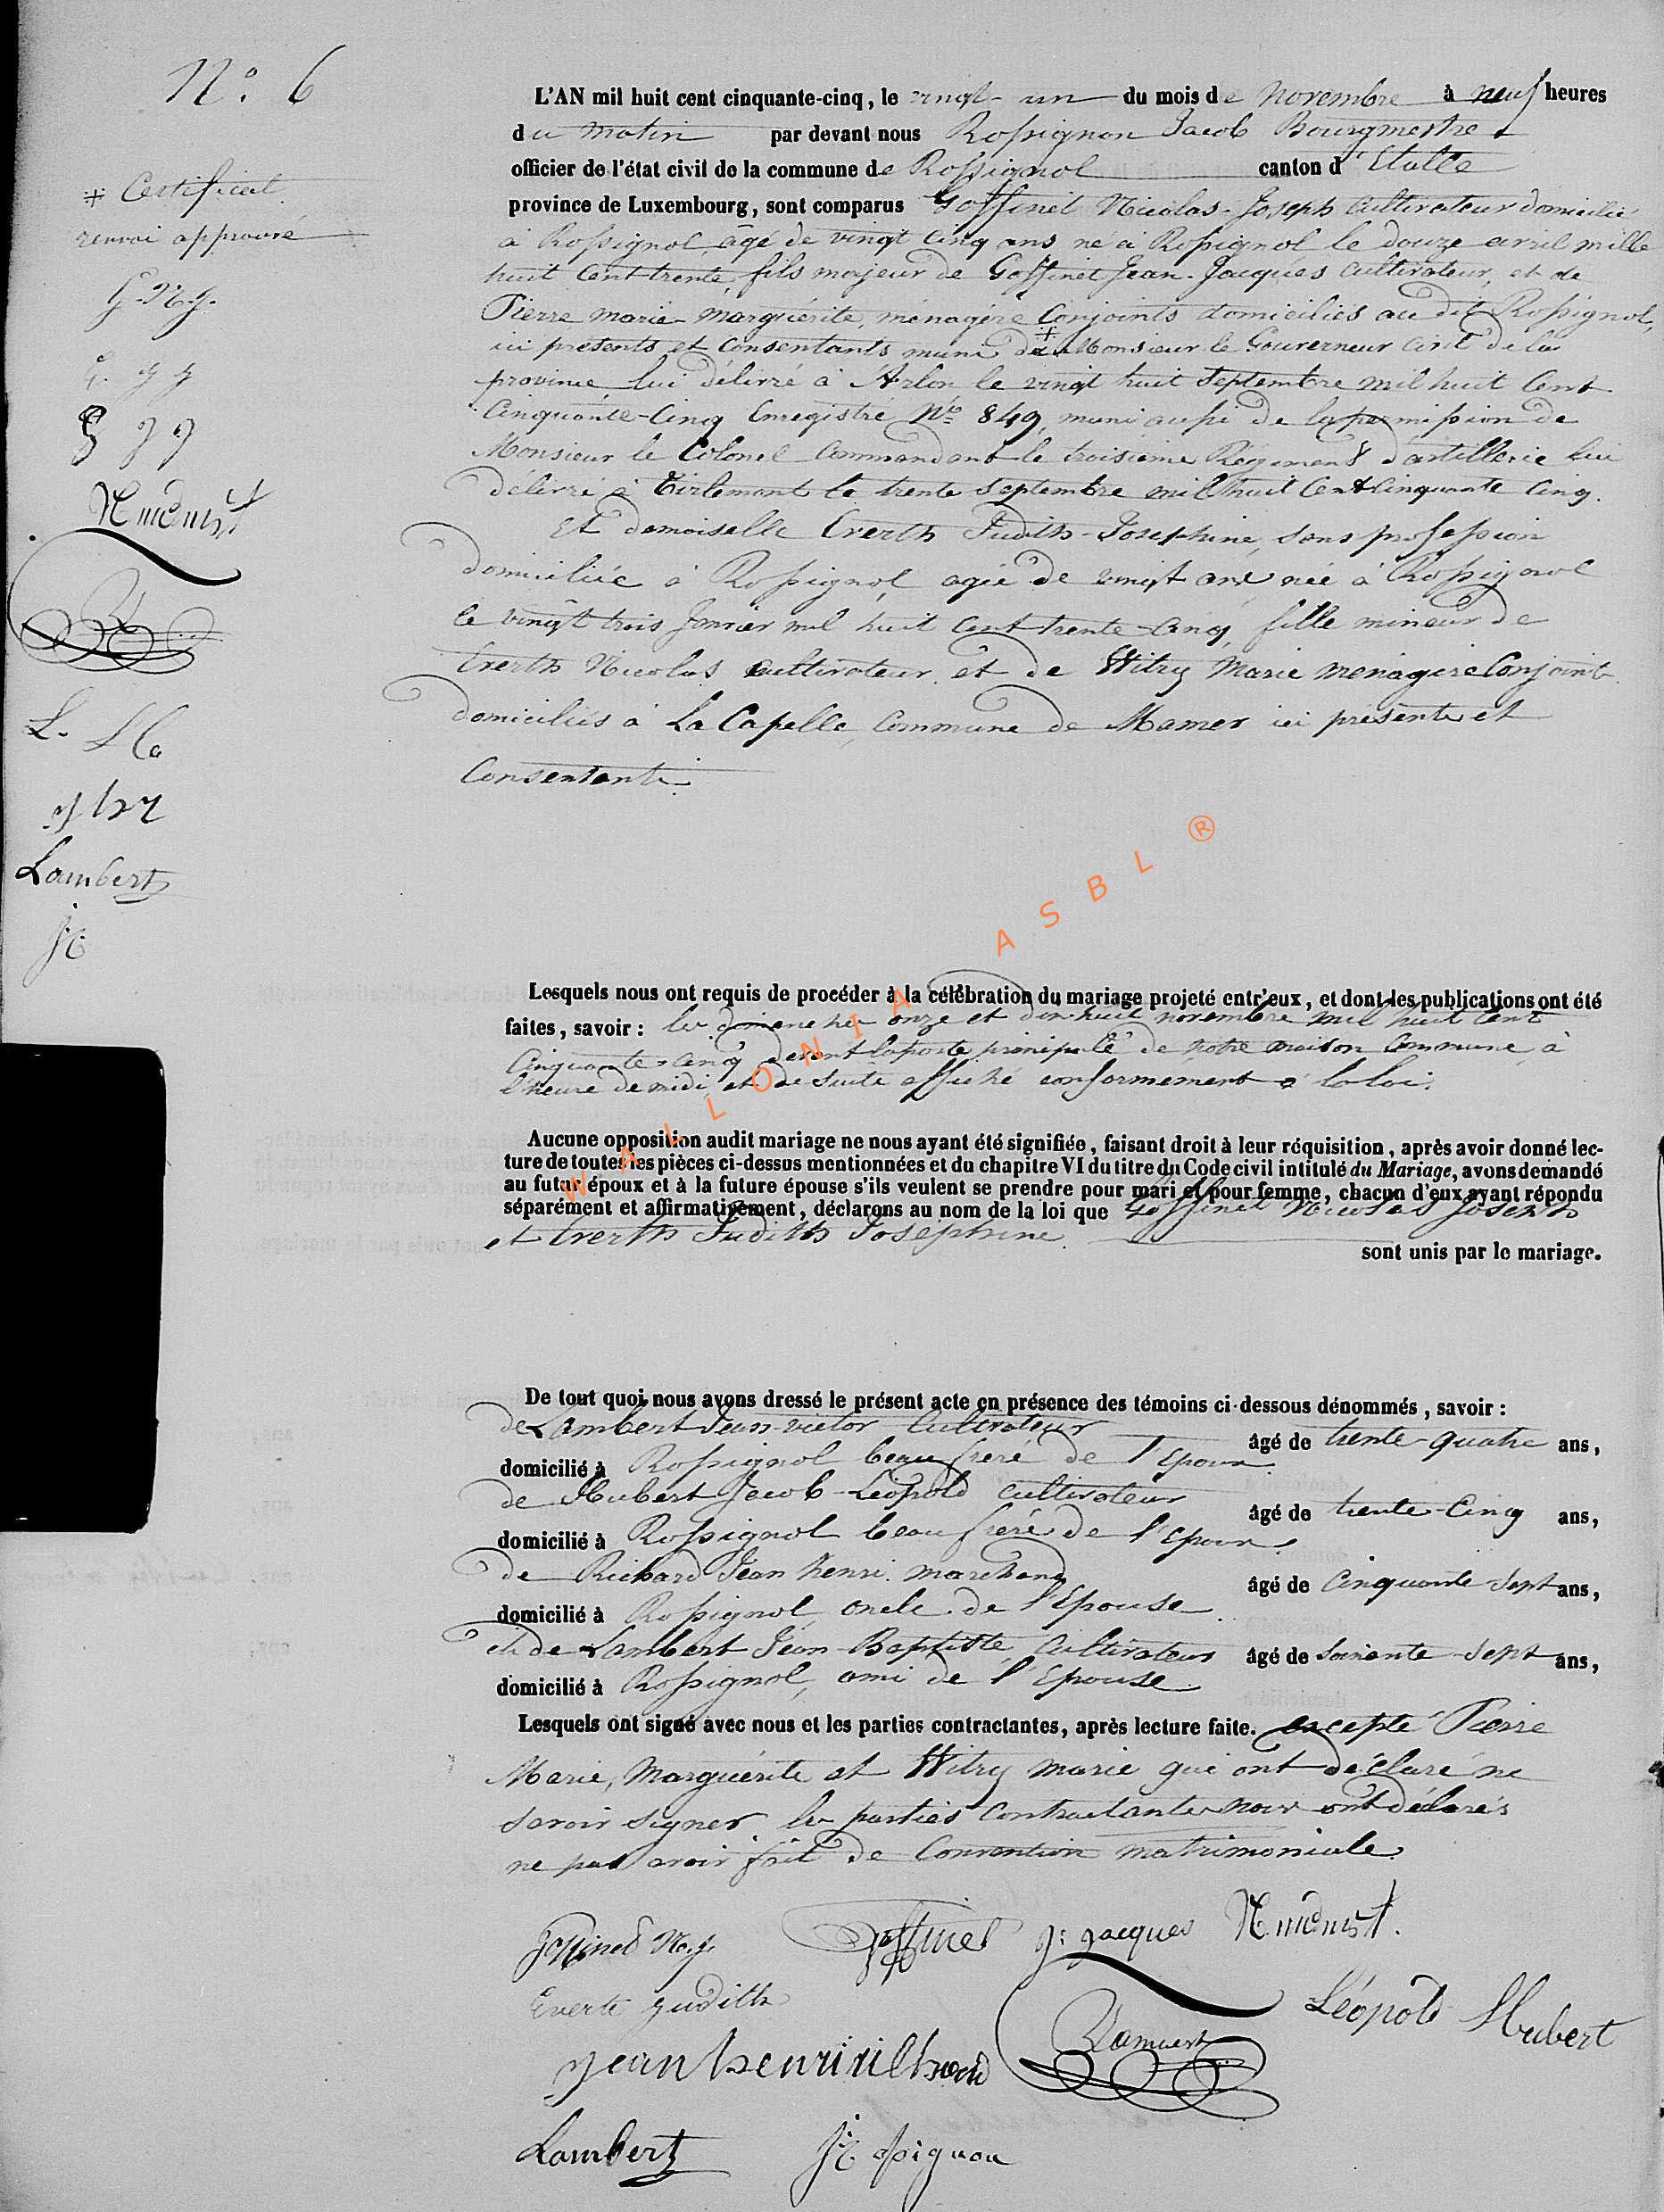 N° 6
L'AN mil huit cent cinquante-cinq, le vingt-un du mois de novembre à neuf heures
du matin par devant nous Rossignon Jacob Bourgmestre
officier de l'état civil de la commune de Rossignol canton d'Etalle
province de Luxembourg, sont comparus Goffinet Nicolas-Joseph cultivateur domicilié
à Rossignol, âgé de vingt cinq ans né à Rossignol le douze avril mille
huit cent trente, fils majeur de Goffinet Jean-Jacques cultivateur, et de
Pierre Marie-Marguérite, ménagère conjoints domiciliés au dit Rossignol,
ici présents et consentants muni de + Monsieur le Gouverneur civil de la
province lui délivré à Arlon le vingt huit septembre mil huit cent
cinquante-cinq enregistré N° 849, muni aussi de la permission de
Monsieur le Colonel commandant le troisième Régiment d'artillerie lui
délivré à Tirlemont le trente septembre mil huit cent cinquante cinq.
Et demoiselle Everth Judith-Josephine, sans profession
domiciliée à Rossignol, agée de vingt ans, née à Rossignol
le vingt trois janvier mil huit cent trente-cinq, fille mineur de
Everth Nicolas cultivateur, et de Witry Marie ménagère conjoints
domiciliés à La Capelle, commune de Mamer ici présents et
consentants.
+ Certificat
renvoi approuvé
G. N. J.
G. J J
E J J
L. H
J h r
Lambert
JR
Lesquels nous ont requis de procéder à la célébration du mariage projeté entr'eux, et dont les publications ont été
faites, savoir : les dimanches onze et dix-huit novembre mil huit cent
cinquante-cinq devant la porte principale de notre maison commune, à
l'heure de midi, et de suite affiché conformement à la loi.
Aucune opposition audit mariage ne nous ayant été signifiée, faisant droit à leur réquisition, après avoir donné lec-
ture de toutes les pièces ci-dessus mentionnées et du chapitre VI du titre du Code civil intitulé du Mariage, avons demandé
au futur époux et à la future épouse s'ils veulent se prendre pour mari et pour femme, chacun d'eux ayant répondu
séparément et affirmativement, déclarons au nom de la loi que Goffinet Nicolas Joseph
et Everth Judith Josephine
sont unis par le mariage.
De tout quoi nous avons dressé le présent acte en présence des témoins ci-dessous dénommés, savoir :
de Lambert Jean-victor cultivateur âgé de trente-quatre ans,
domicilié à Rossignol beau frère de l'Epoux.
de Hubert Jacob-Léopold cultivateur âgé de trente-cinq ans,
domicilié à Rossignol beau frère de l'Epoux.
de Richard Jean henri marchand âgé de cinquante sept ans,
domicilié à Rossignol, oncle de l'Epouse.
et de Lambert Jean-Baptiste, cultivateur âgé de soixante-sept ans,
domicilié à Rossignol, ami de l'Epouse.
Lesquels ont signé avec nous et les parties contractantes, après lecture faite. excepté Pierre
Marie, Marguérite et Witry marie qui ont déclaré ne
savoir signer les parties contractantes nous ont déclarés
ne pas avoir fait de convention matrimoniale.
Goffinet N. J. Goffinet J: Jacques
Everte Judith Léopold Hubert
Jean henri richard Lambert
Lambert JRossignon
WALLONIA ASBL ®